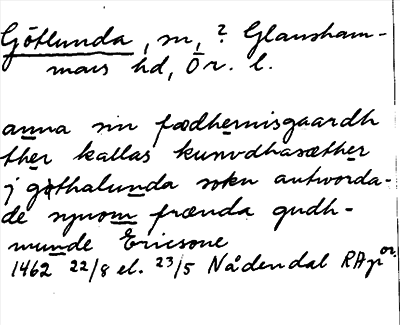 Götlunda, sn, ? Glansham-
mars hd, Ör. l.
anna sin fædhernisgaardh
ther kallas kunvdhasæther
j gøthalunda sokn antworda-
de synom frænda gudh-
munde Ericsone
1462 22/8 el. 23/5 Nådendal RAp or.